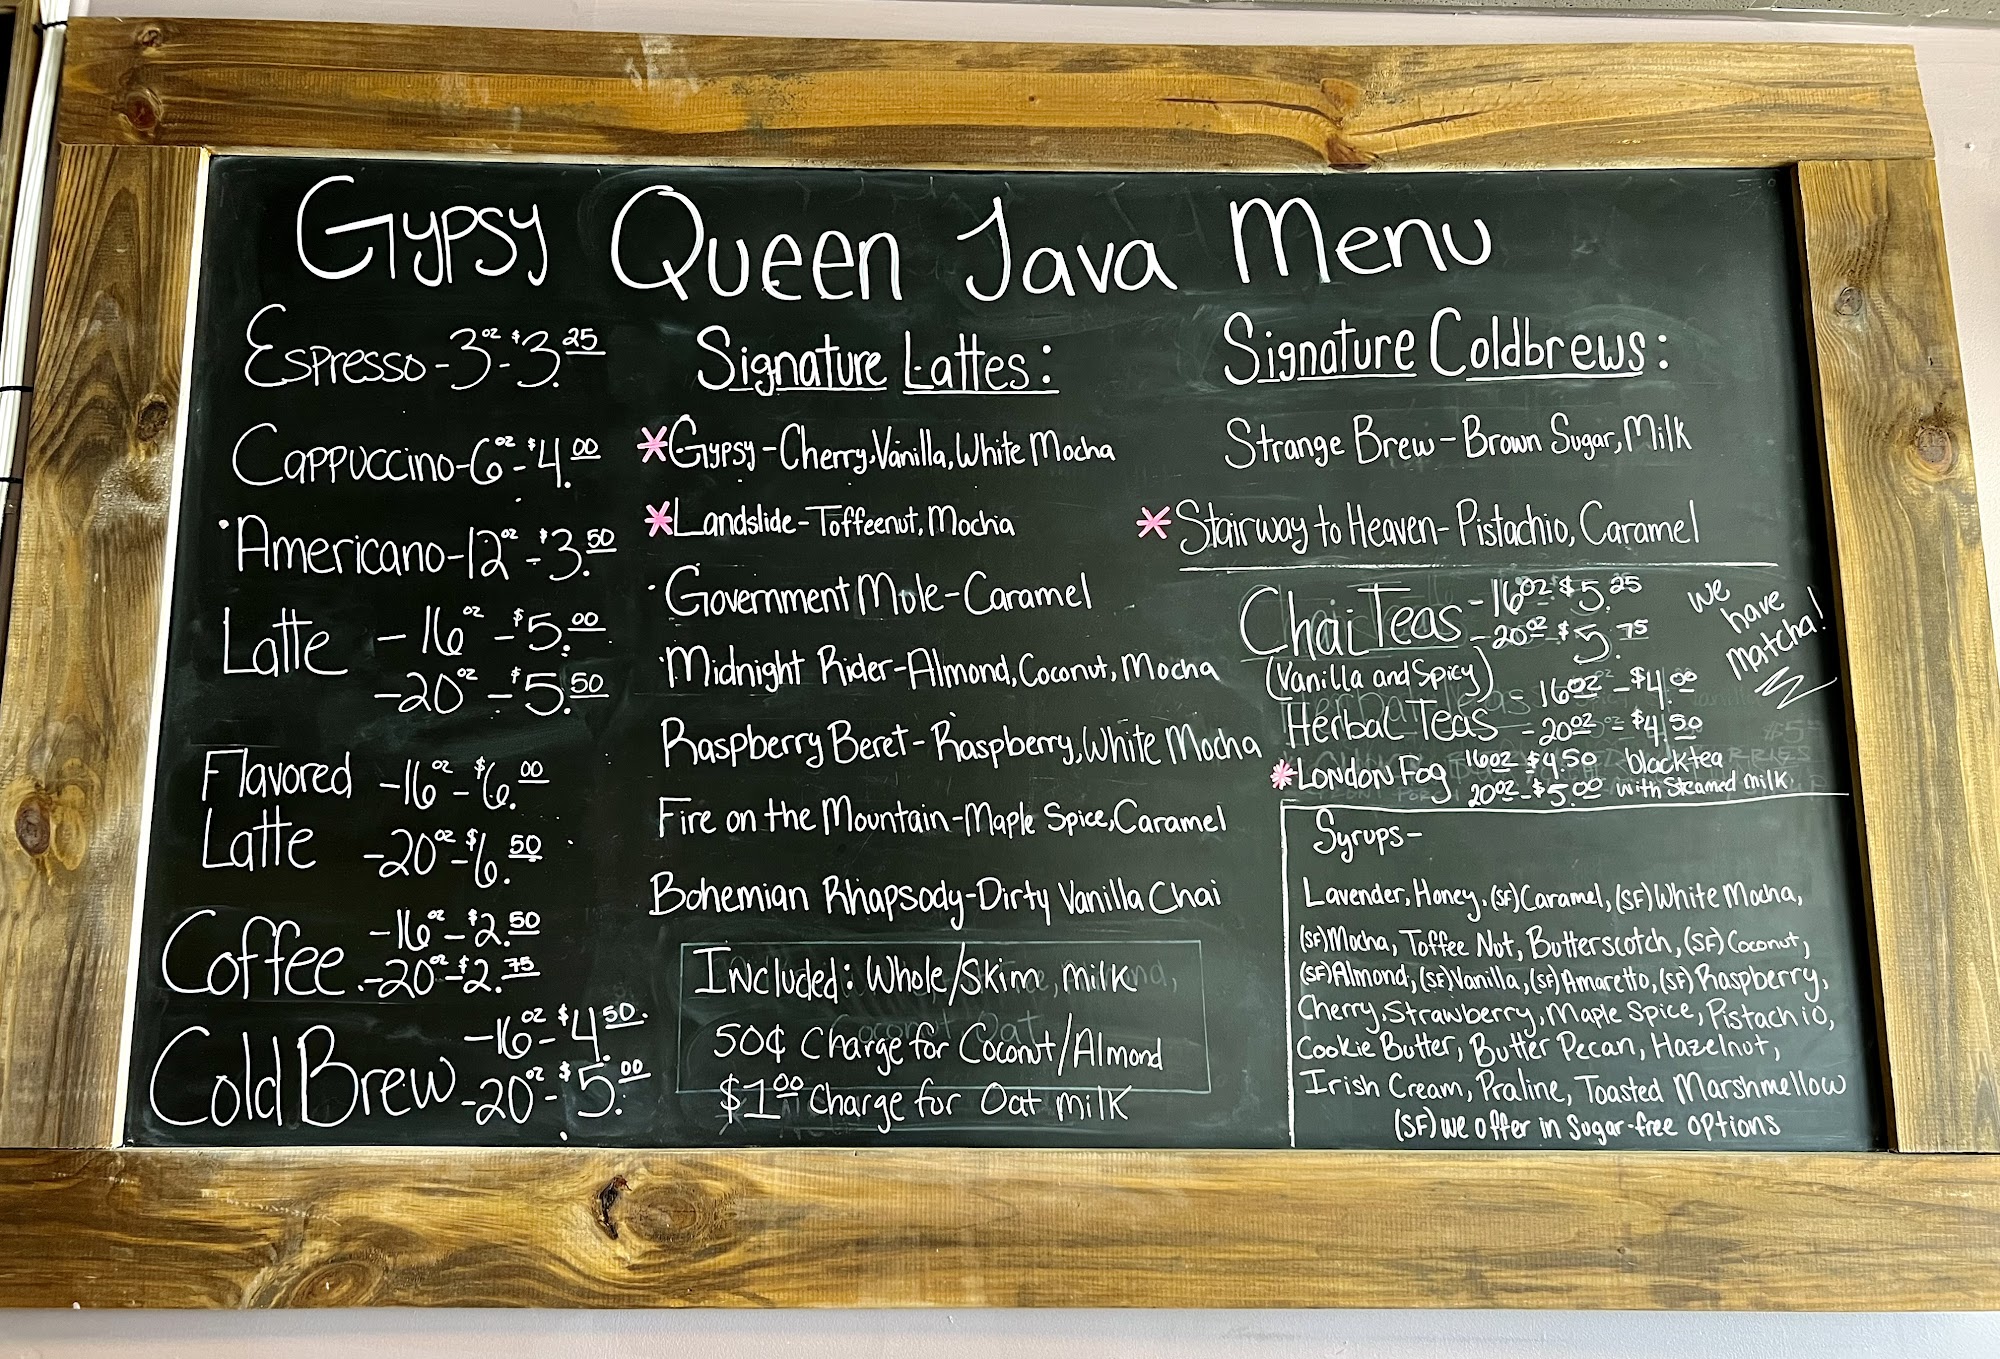 Gypsy Queen Java Menu
Espresso - 3oz - $3.25
Cappuccino - 6oz - $4.00
Americano - 12oz - $3.50
Latte - 16oz - $5.00
- 20oz - $5.50
Flavored - 16oz - $6.00
Latte - 20oz - $6.50
Coffee - 16oz - $2.50
- 20oz - $2.75
Cold Brew - 16oz - $4.50
- 20oz - $5.00
Signature Lattes:
*Gypsy - Cherry, Vanilla, White Mocha
*Landslide - Toffeenut, Mocha
Government Mule - Caramel
Midnight Rider - Almond, Coconut, Mocha
Raspberry Beret - Raspberry, White Mocha
Fire on the Mountain - Maple Spice, Caramel
Bohemian Rhapsody - Dirty Vanilla Chai
Included: Whole/Skim Milk
50¢ Charge for Coconut/Almond
$1.00 Charge for Oat Milk
Signature Coldbrews:
Strange Brew - Brown Sugar, Milk
*Stairway to Heaven - Pistachio, Caramel
Chai Teas - 16oz - $5.25
- 20oz - $5.75
(Vanilla and Spicy)
Herbal Teas 16oz - $4.00
- 20oz - $4.50
*London Fog 16oz $4.50 black tea
20oz - $5.00 with steamed milk
We
have
Matcha!
Syrups -
Lavender, Honey, (SF) Caramel, (SF) White Mocha,
(SF) Mocha, Toffee Nut, Butterscotch, (SF) Coconut,
(SF) Almond, (SF) Vanilla, (SF) Amaretto, (SF) Raspberry,
Cherry, Strawberry, Maple Spice, Pistachio,
Cookie Butter, Butter Pecan, Hazelnut,
Irish Cream, Praline, Toasted Marshmellow
(SF) we offer in sugar-free options